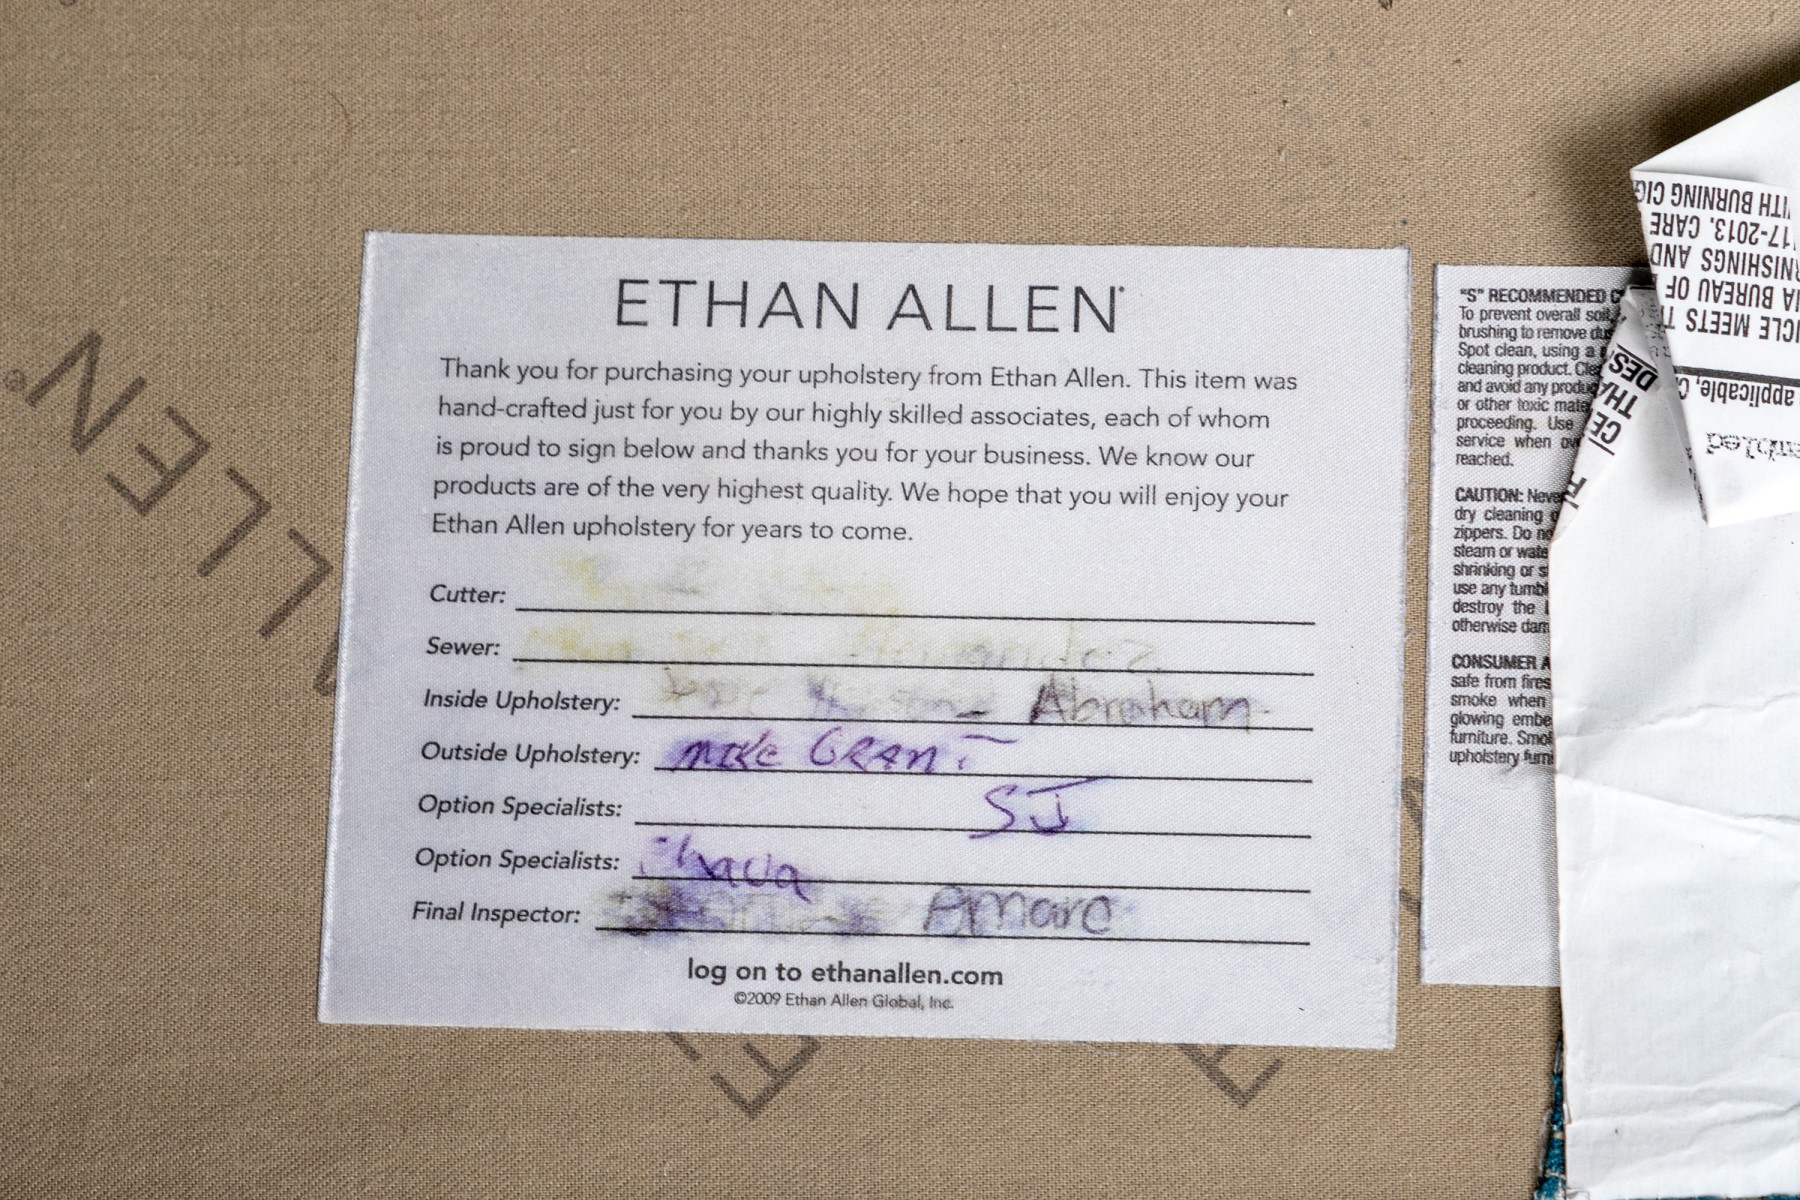 ETHAN ALLEN
Thank you for purchasing your upholstery from Ethan Allen. This item was
hand-crafted just for you by our highly skilled associates, each of whom
is proud to sign below and thanks you for your business. We know our
products are of the very highest quality. We hope that you will enjoy your
Ethan Allen upholstery for years to come.
Cutter:
Sewer:
Inside Upholstery: Abraham
Outside Upholstery: MIKE GRANT
Option Specialists: SJ
Option Specialists:
Final Inspector:
log on to ethanallen.com
©2009 Ethan Allen Global, Inc.
"S" RECOMMENDED
To prevent overall soil
brushing to remove
Spot clean, using a
cleaning product.
and avoid any
or other toxic
proceeding. Use
service when
reached.
CAUTION: Never
dry cleaning
zippers. Do
steam or
shrinking or
use any
destroy the
otherwise
CONSUMER
safe from fires
smoke when
glowing
furniture.
upholstery
BURNING
17-2013. CARE
AND
BUREAU OF
MEETS
applicable,